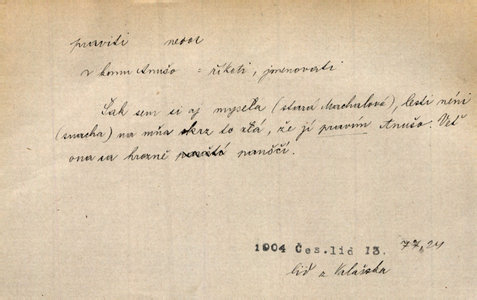 praviti nedok
v komu Anušo = říkati, jmenovati
Šak sem si aj mysela (stará Machalová), lesti néni
(snacha) na mňa skrz to zlá, že jí pravím Anušo. Veť
ona sa hrozně panóčí.
1904 Čes. lid 13. 77, 24
lid z Valašska